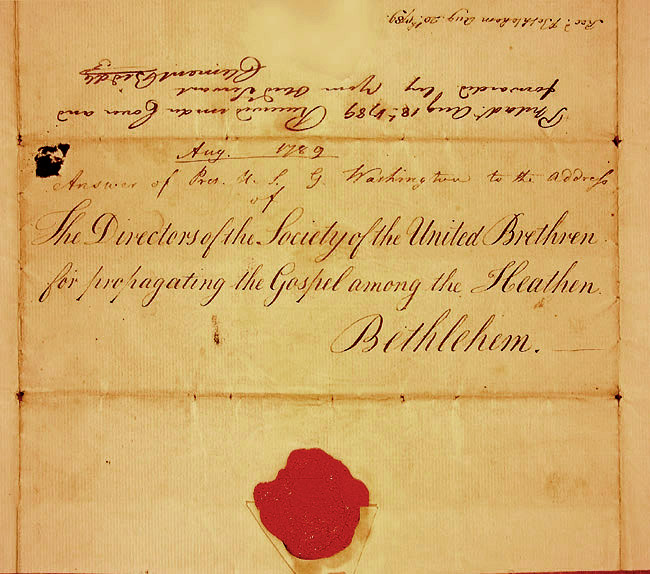 Recd. Bethlehem Aug. 20th. 1789.
Philada. Aug 18th. 1789 Received under Cover and
forwarded by your Obed Servant
Clement Biddle
Aug. 1789
Answer of Pres. U. S. G. Washington to the address
of
The Directors of the Society of the United Brethren
for propagating the Gospel among the Heathen.
Bethlehem.